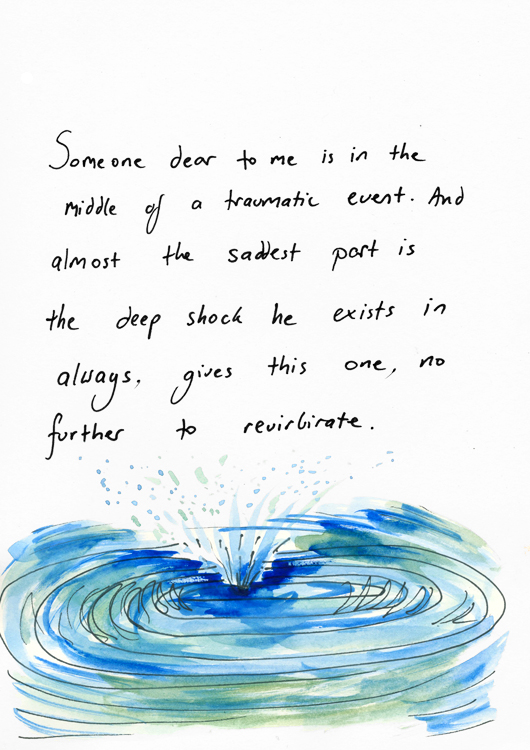 Someone dear to me is in the
middle of a traumatic event. And
almost the saddest part is
the deep shock he exists in
always, gives this one, no
further to revirbirate.